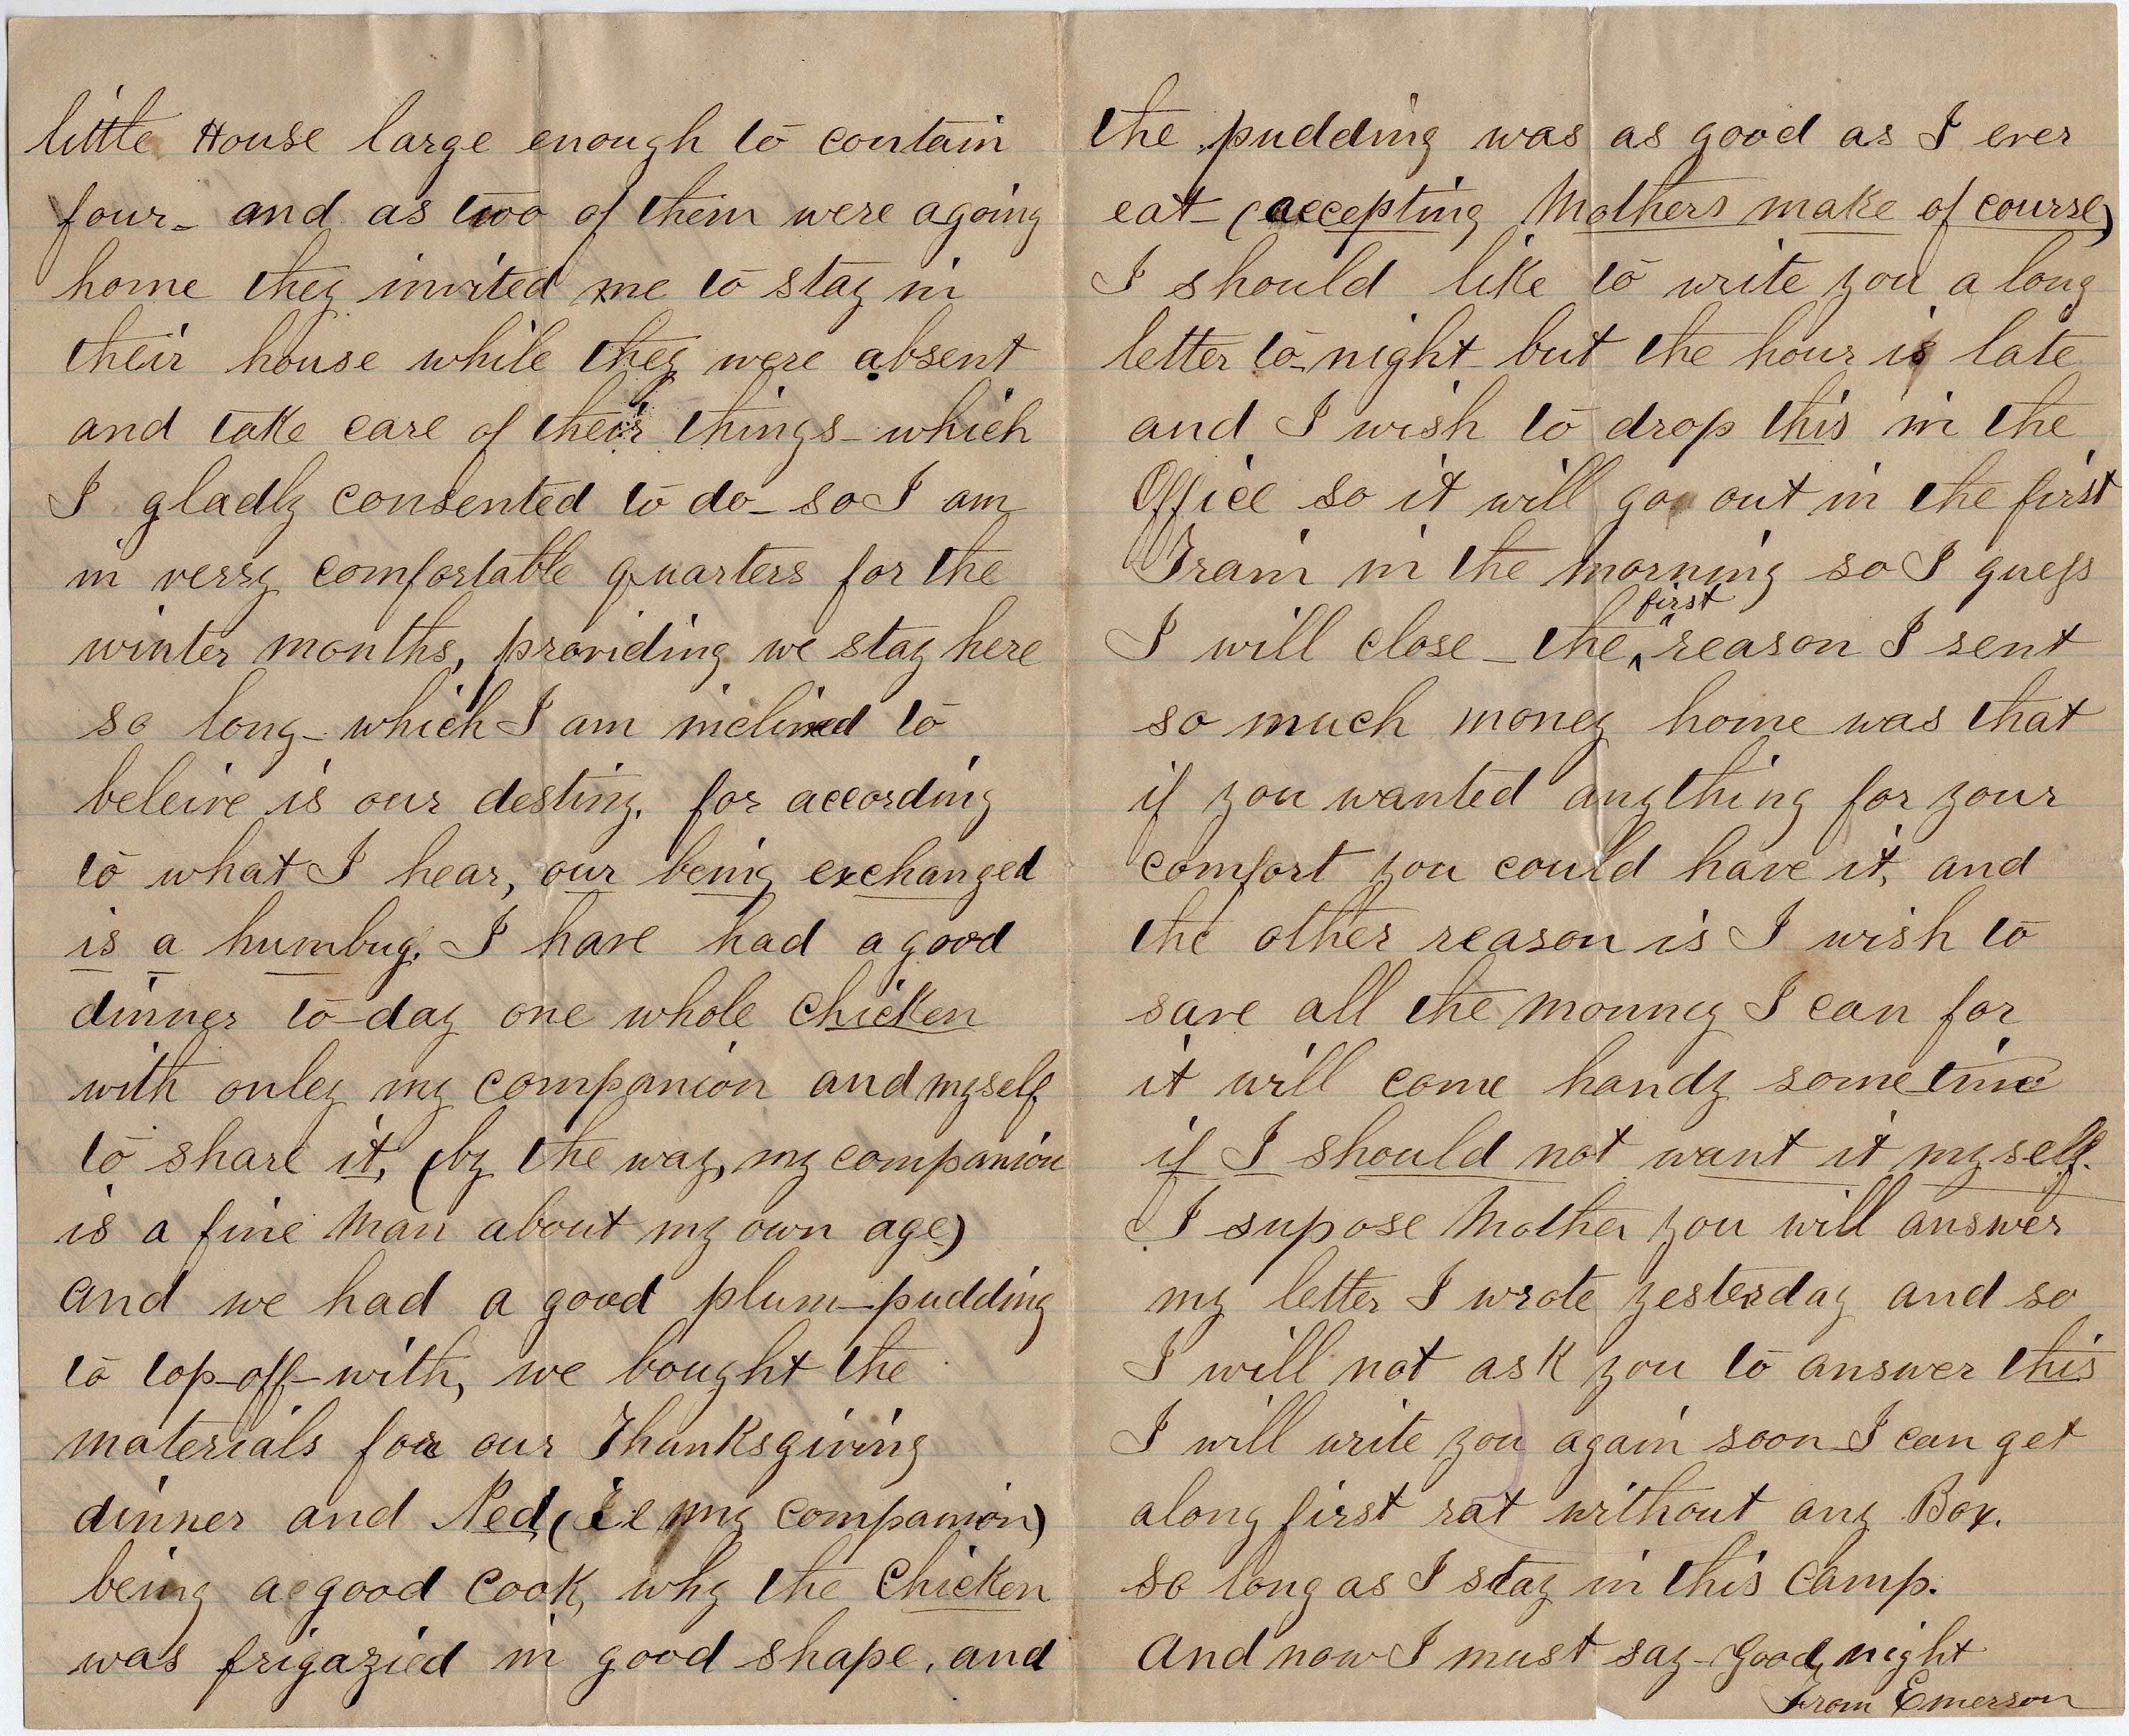 little House large enough to contain
four - and as two of them were agoing
home they invited me to stay in
their house while they were absent
and take care of their things - which
I gladly consented to do - so I am
in verry comfortable quarters for the
winter months, providing we stay here
so long - which I am inclined to
beleive is our destiny, for according
to what I hear, our being exchanged
is a humbug. I have had a good
dinner to-day one whole Chicken
with onley my companion and myself
to share it, (by the way, my companion
is a fine man about my own age)
and we had a good plum-pudding
to top-off-with, we bought the
materials for our Thanksgiving
dinner and Ned, (I e my companion)
being a good cook, why the Chicken
was frigazied in good shape, and
the pudding was as good as I ever
eat - (accepting Mothers make of course)
I should like to write you a long
letter to-night but the hour is late
and I wish to drop this in the
Office so it will go out in the first
Train in the morning so I guess
I will close - the first reason I sent
so much money home was that
if you wanted anything for your
comfort you could have it, and
the other reason is I wish to
save all the monney I can for
it will come handy some time
if I should not want it myself.
I supose Mother you will answer
my letter I wrote yesterday and so
I will not ask you to answer this
I will write you again soon I can get
along first rat without any Box.
so long as I stay in this Camp.
And now I must say - Good, night
From Emerson